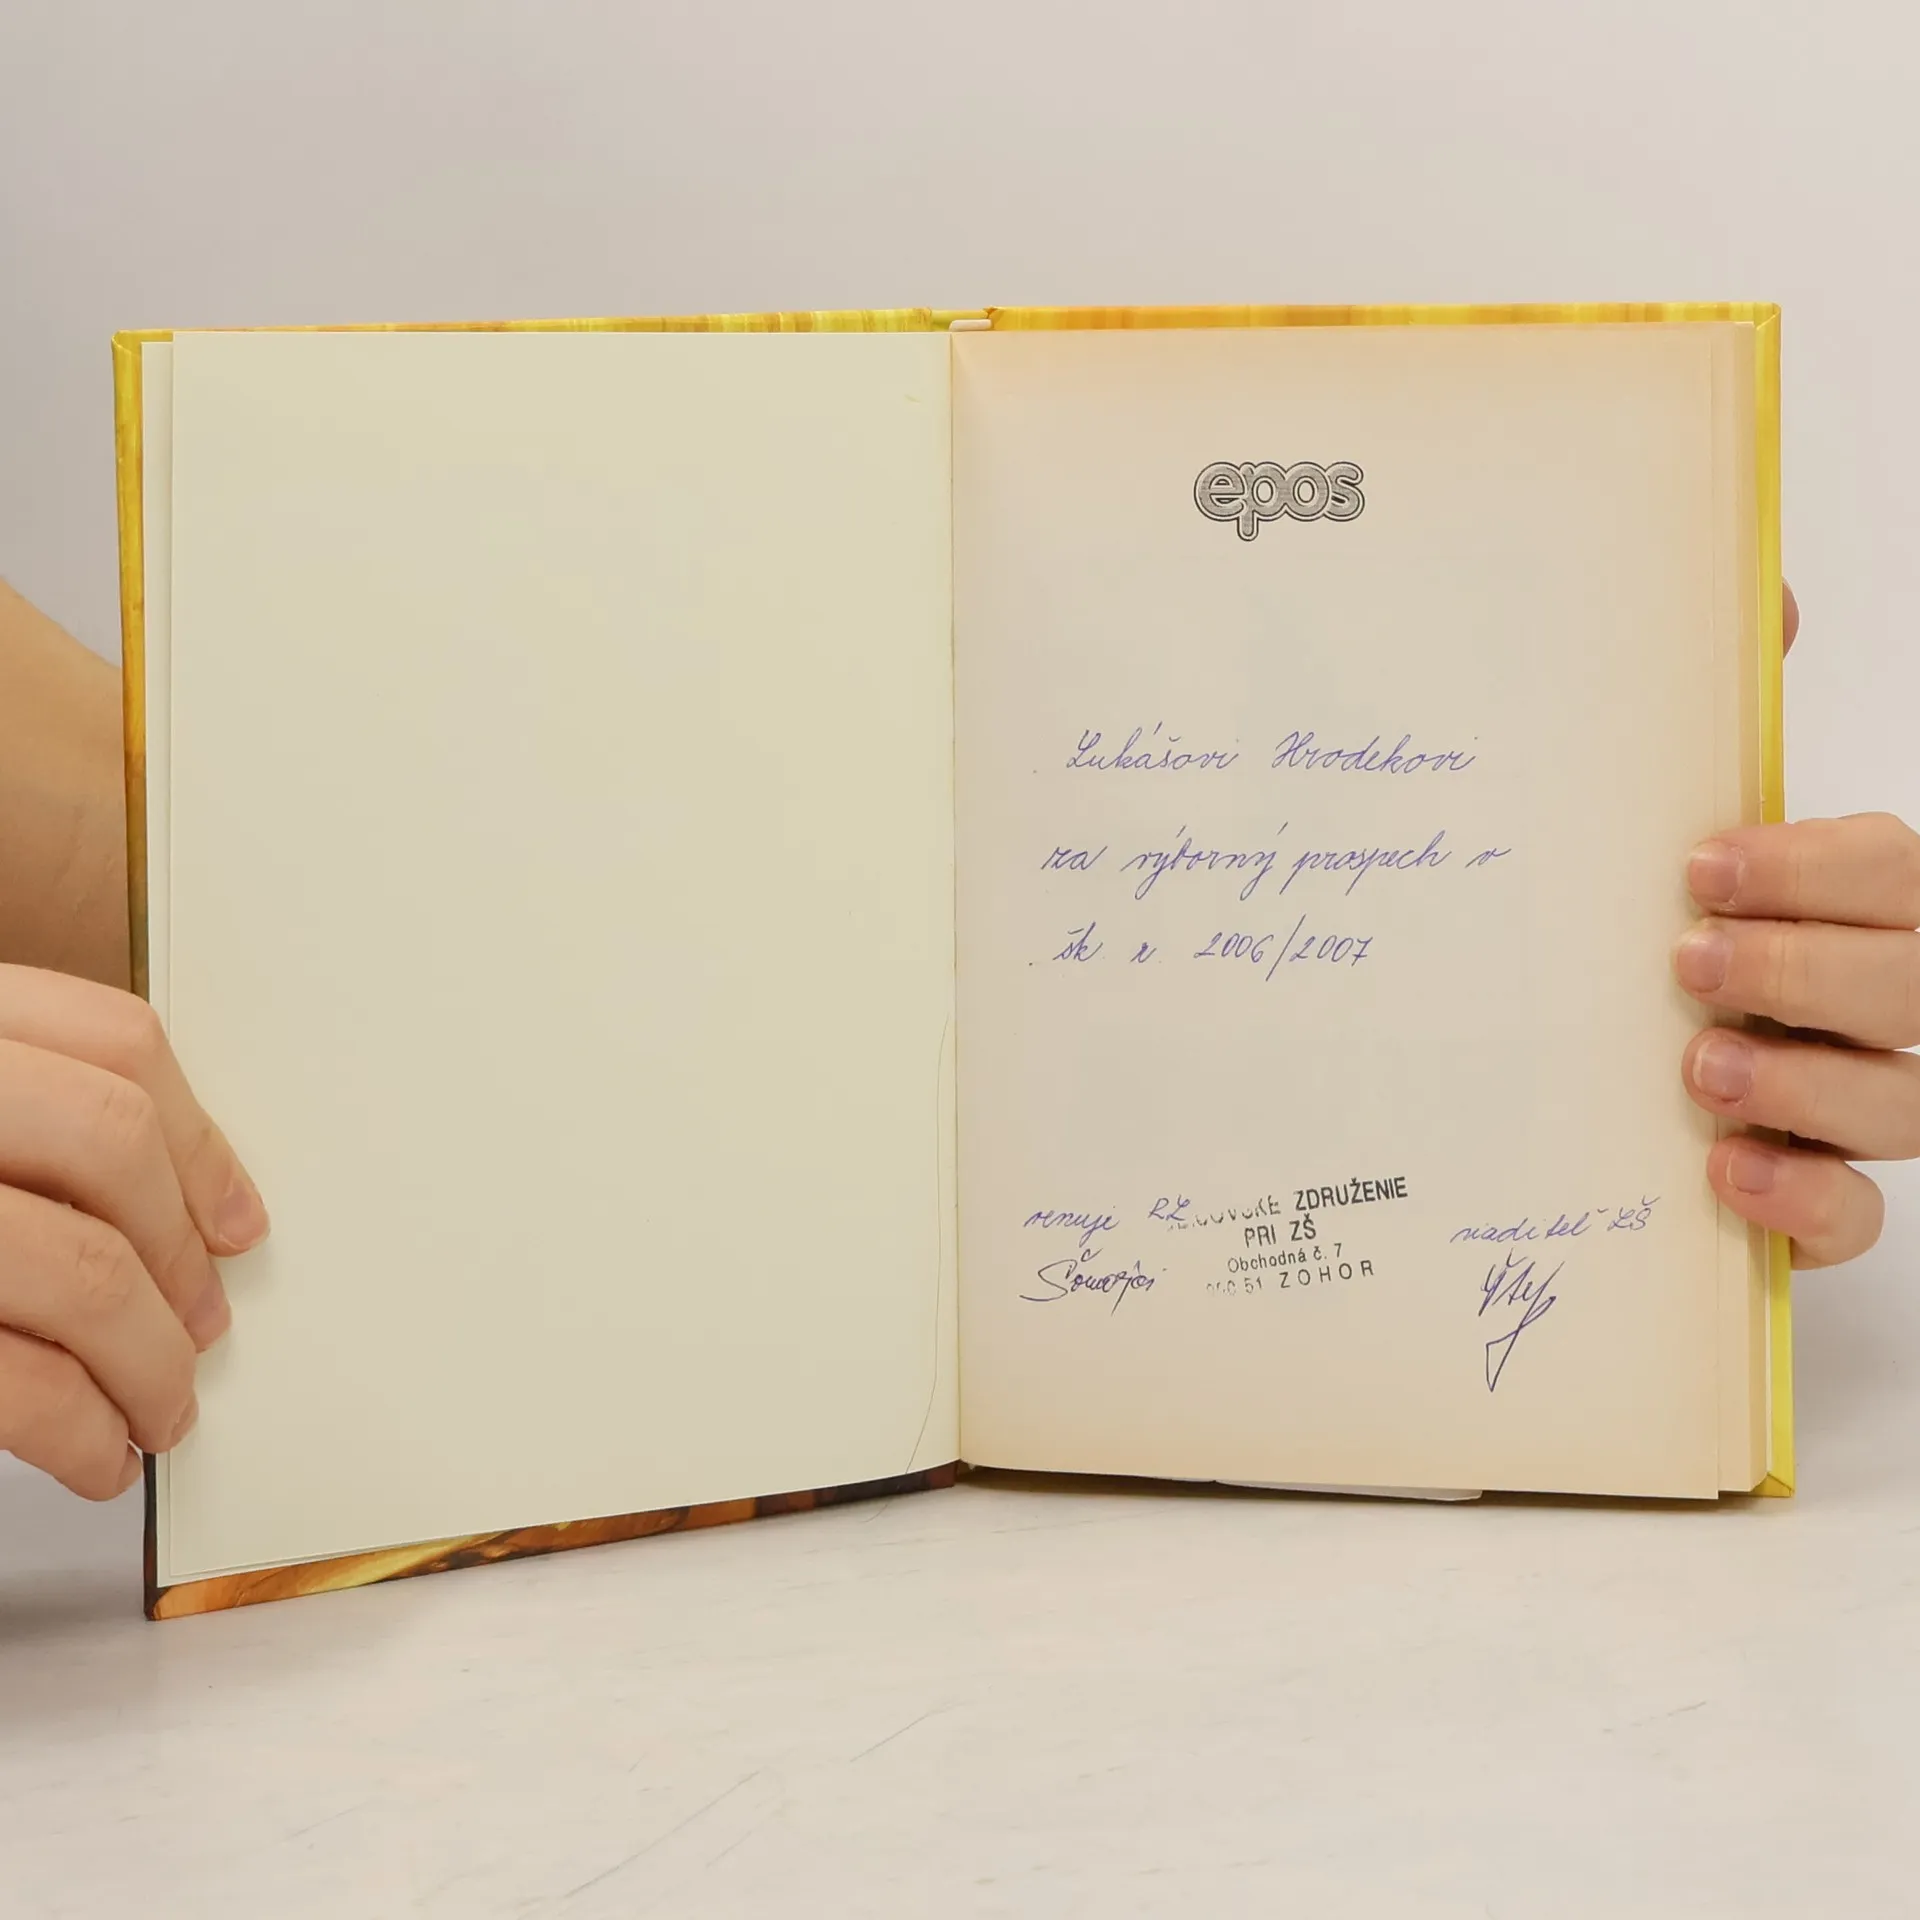 epos
Lukášovi Hrodekovi
za výborný prospech v
šk. r. 2006/2007
venuje RZ
ZDRUŽENIE
PRI ZŠ
Obchodná č. 7
51 ZOHOR
riaditeľ ZŠ